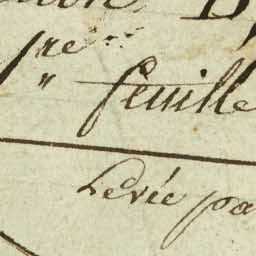 1re feuille
Levée pa